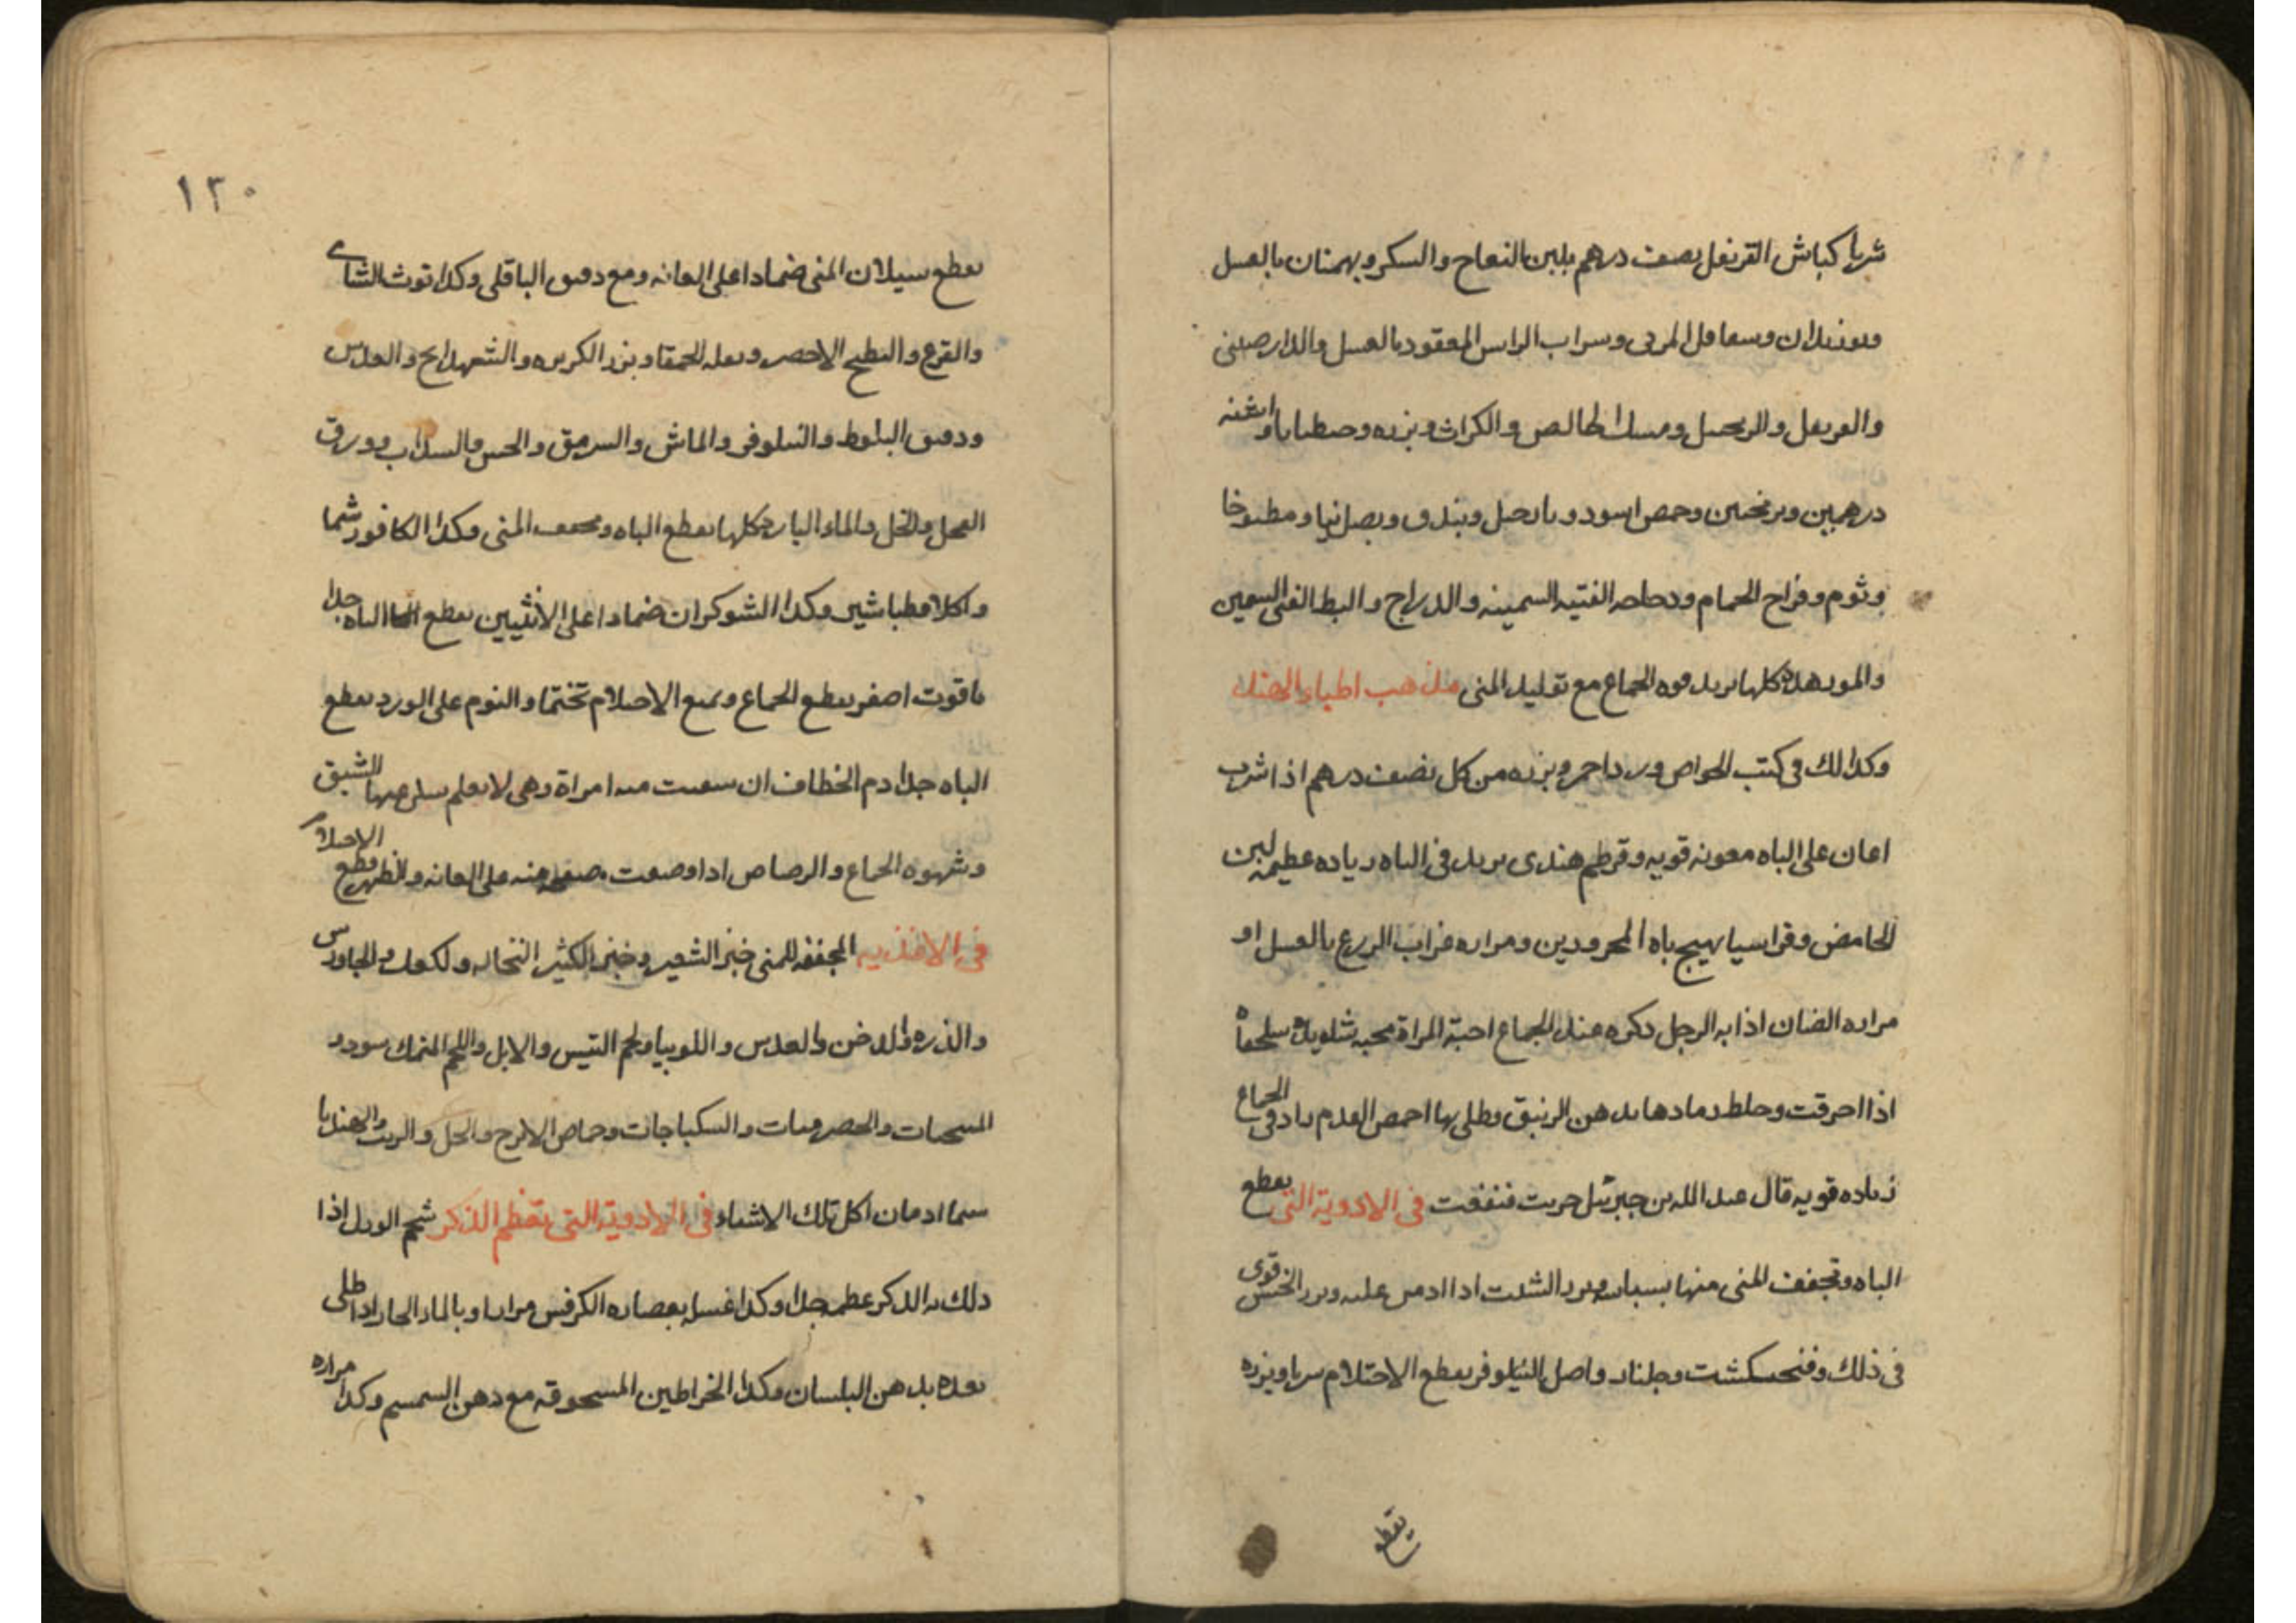 شربا كباش القرنفل نصف درهم بلبن النعاج والسكر وبهمنان بالعسل
وبوزيدان وسقاقل المربى وشراب الراسن المعقود بالعسل والدارصينى
والقرنفل والزنجبيل ومسك الخالص والكراث وبزره واشنه
درهمين وترنجبين وحمص اسود ونارجيل وبندق وبصل نيا ومطبوخا
وثوم وفراخ الحمام ودجاجه الفتيه السمينه والدراج والبط الفتى السمين
والموز هذه كلها يزيد قوه الجماع مع تقليل المنى مذهب اطباء الهند
وكذالك فى كتب الخواص ورد احمر وبزره من كل نصف درهم اذا شرب
اعان على الباه معونه قويه وقرطم هندى يزيد فى الباه زياده عظيمه لبن
الحامض وقراسيا يهيج باه المحرورين ومراره غراب الزرع بالعسل او
مراره الضان اذا به الرجل ذكره عند الجماع احبته المراة محبه شديده سلحفاه
اذا احرقت وخلط رمادها بدهن الزنبق وطلى بها اخمص القدم زاد فى الجماع
زياده قويه قال عبد الله بن جبرئيل جربت فنفعت فى الادوية التى يقطع
الباه وتجفف المنى منها بسباسه وبزر الشبت اذا ادمن عليه وبزر الخس قوى
فى ذلك وفنجنكشت وجلنار واصل النيلوفر يقطع الاحتلام شربا وبزره
يقطع
١٣٠
يقطع سيلان المنى ضمادا على العانه ومع دقيق الباقلى وكذا توث الشامى
والقرع والبطيخ الاخضر وبقله الحمقا وبزر الكزبره والشهدانج والعدس
ودقيق البلوط والنيلوفر والماش والسرمق والخس والسذاب وورق
الفجل والخل والماء البارد كلها يقطع الباه ويجفف المنى وكذا الكافور شما
واكلا وطباشير وكذا الشوكران ضمادا على الانثيين يقطع الباه جدا
ياقوت اصفر يقطع الجماع ويمنع الاحتلام تختما والنوم على الورد يقطع
الباه جدا دم الخطاف ان سقيت منه امراة وهى لا تعلم سكن عنها الشبق
وشهوه الجماع والرصاص اذا وضعت صفيحه منه على العانه والظهر قطع الاحتلام
فى الاغذيه المجففه للمنى خبز الشعير وخبز الكثير النخاله والكعك والجاورس
والذره والدخن والعدس واللوبيا ولحم التيس والابل واللحم النمكسود و
والحصرميات والسكباجات وحماض الاترج والخل والهندبا
سيما ادمان اكل تلك الاشياء فى الادوية التى يعظم الذكر شحم الورل اذا
دلك به الذكر عظمه جدا وكذا غسله بعصاره الكرفس مرارا وبالماء الحار اذا طلى
بعده بدهن البلسان وكذا الخراطين المسحوقه مع دهن السمسم وكذا مراره